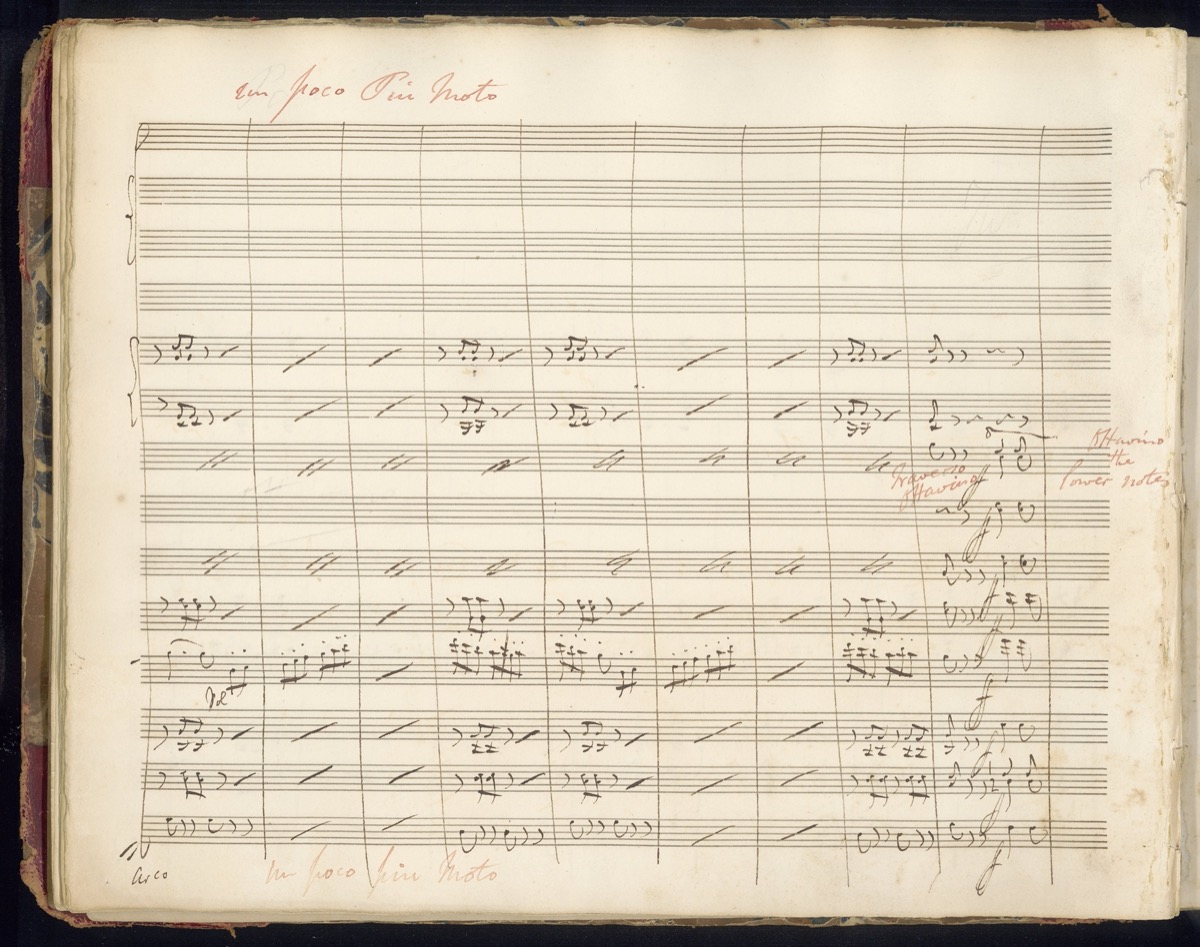 un poco Piu Moto
Ottavino
the
Lower notes
Traverso
Ottavino
Vol
Arco
un poco piu Moto